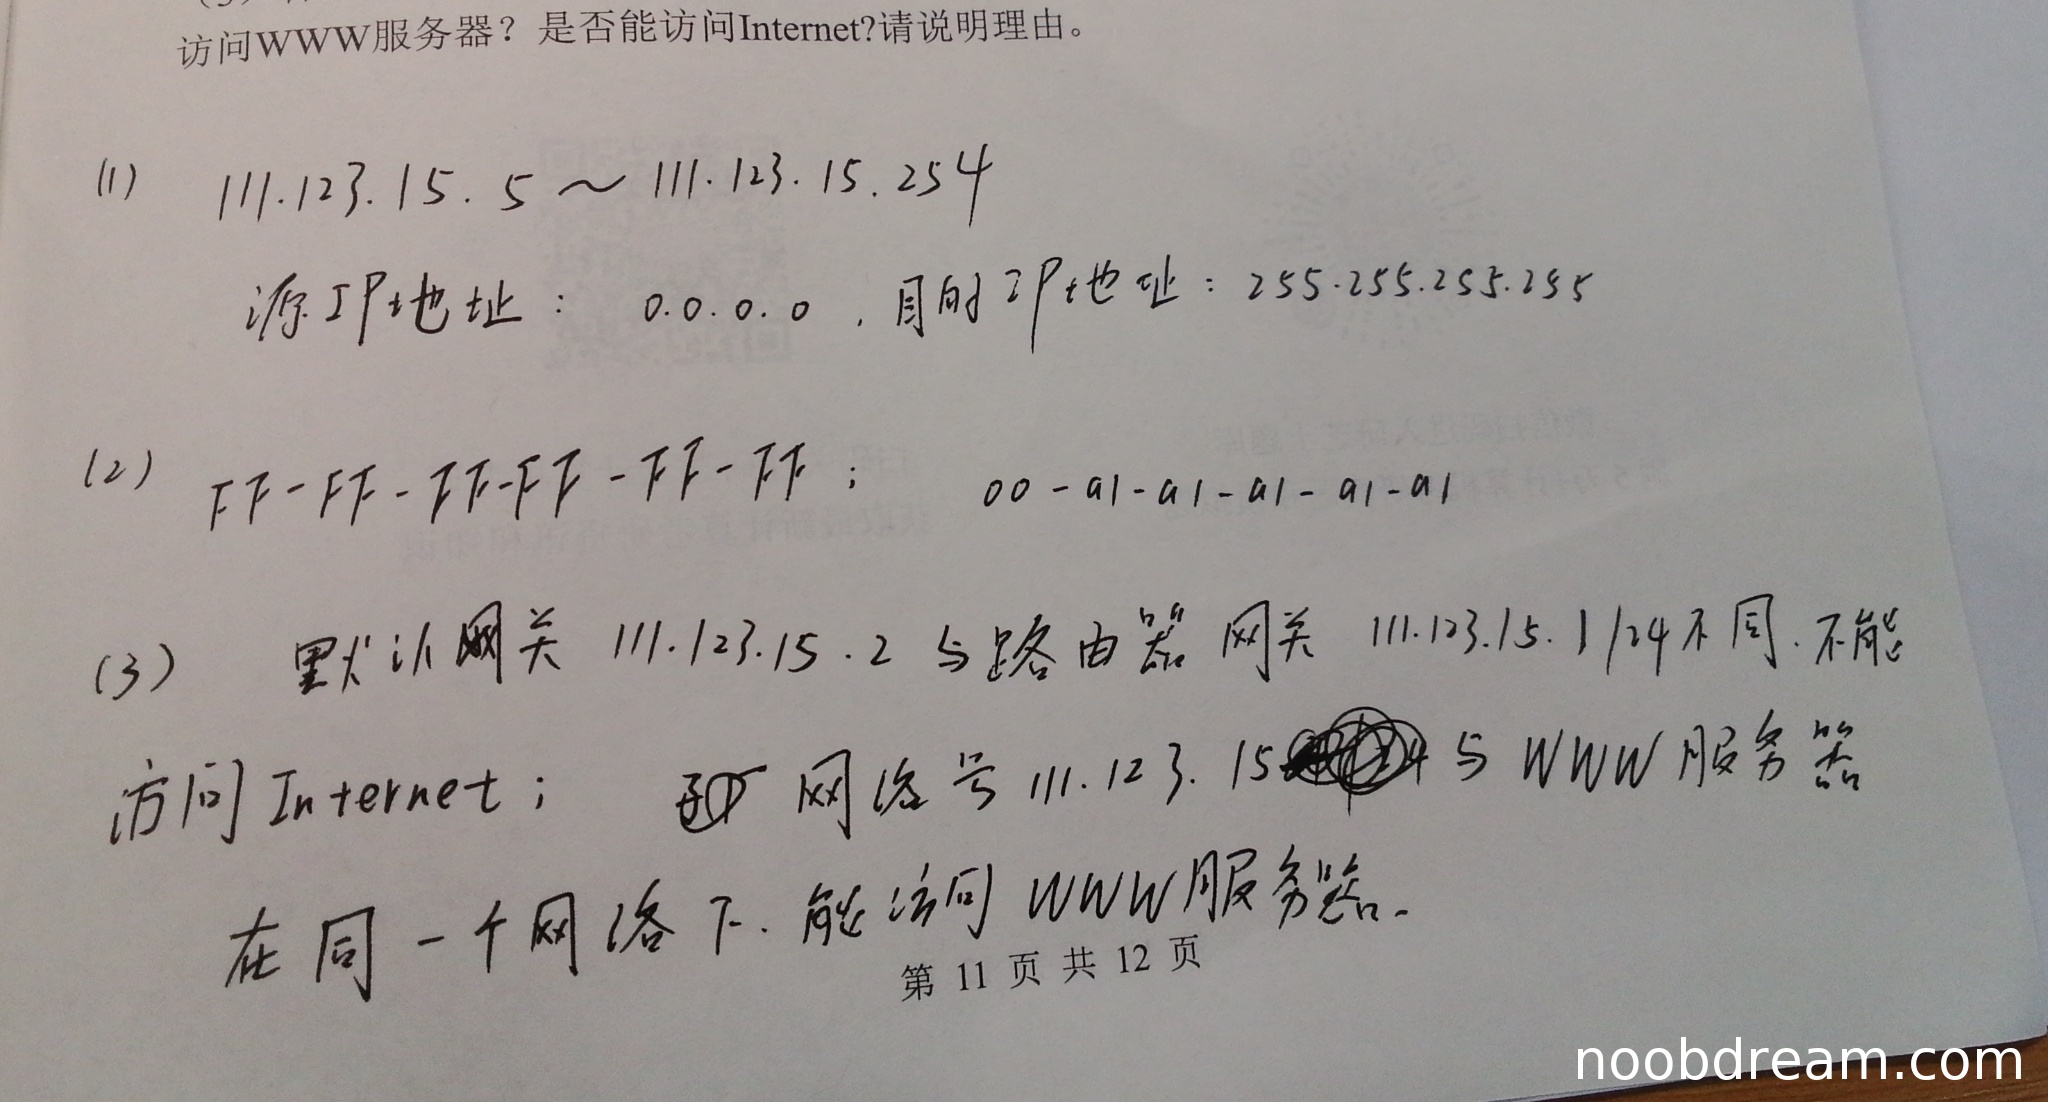 访问WWW服务器？是否能访问Internet?请说明理由。
(1) 111.123.15.5～111.123.15.254
源IP地址： 0.0.0.0 ，目的IP地址：255.255.255.255
(2) FF-FF-FF-FF-FF-FF； 00-a1-a1-a1-a1-a1
(3) 默认网关 111.123.15.2 与路由器网关 111.123.15.1/24不同，不能
访问Internet； 网络号111.123.15 与WWW服务器
在同一个网络下，能访问WWW服务器.
第 11 页 共 12 页
noobdream.com